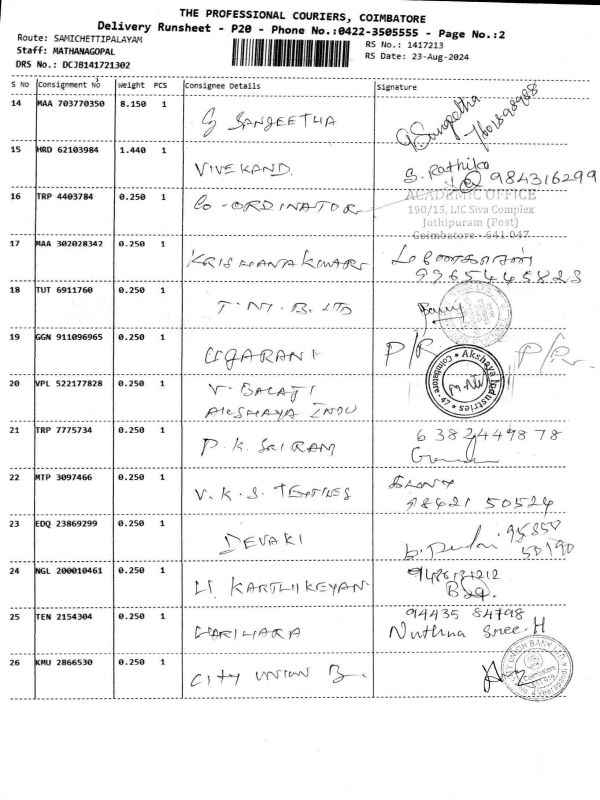 THE PROFESSIONAL COURIERS, COIMBATORE
Delivery Runsheet - P20 - Phone No.:0422-3505555 - Page No.:2
Route: SAMICHETTIPALAYAM
Staff: MATHANAGOPAL
DRS No.: DCJB141721302
RS No.: 1417213
RS Date: 23-Aug-2024
S No Consignment No Weight PCS Consignee Details Signature
14 MAA 703770350 8.150 1 G SANGEETHA G. Sangeetha
15 HRD 62103984 1.440 1 VIVEKAND. S. Rathika
984316299
16 TRP 4403784 0.250 1 CO-ORDINATOR
ACADEMIC OFFICE
190/15, LIC Siva Complex
Jothipuram (Post)
Coimbatore - 641 047
17 MAA 302028342 0.250 1 KRISHNANTAKUMAR
9965445823
18 TUT 6911760 0.250 1 T.M.B. LTD
19 GGN 911096965 0.250 1 UGARANI P/R P/R.
20 VPL 522177828 0.250 1 V. BALAJI
AKSHAYA INDU
Akshaya Industries
Coimbatore - 47
21 TRP 7775734 0.250 1 P.K. SAI RAM 6382449878
22 MTP 3097466 0.250 1 V.K.S. TEXTILES
98421 50524
23 EDQ 23869299 0.250 1 DEVAKI
24 NGL 200010461 0.250 1 KARTHIKEYAN
25 TEN 2154304 0.250 1 HARIHARA 94435 84798
Nuthna Sree. H
26 KMU 2866530 0.250 1 CITY UNION B